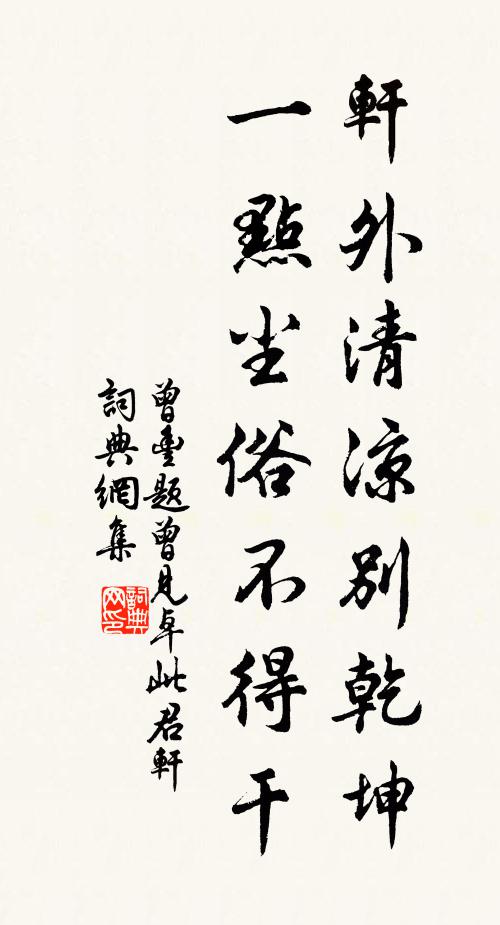 軒外清凉別乾坤
一點尘俗不得干
曾豊題曾見卓此君軒
詞典網集
詞典网印